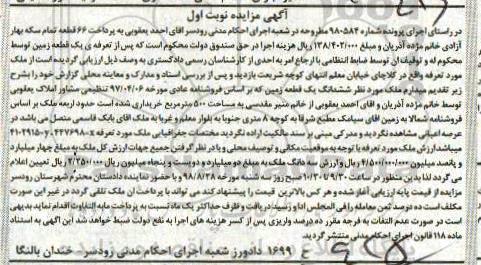 آگهی مزایده نوبت اول
در راستای اجرای پرونده شماره ۹۸۰۵۸۴ مطروحه در شعبه اجرای احکام مدنی رودسر آقای احمد یعقوبی به پرداخت ۶۶ قطعه تمام سکه بهار
آزادی خانم مژده آذریان و مبلغ ۱۳۸/۴۰۲/۰۰۰ ریال هزینه اجرا در حق صندوق دولت محکوم است که پس از تعرفه ی یک قطعه زمین توسط
محکوم له و توقیف آن توسط ضابط انتظامی با ارجاع امر به احدی از کارشناسان رسمی دادگستری به وصف ذیل ارزیابی گردیده است از ملک
مورد تعرفه واقع در کلاچای خیابان معلم انتهای کوچه شریعت بازدید و پس از بررسی اسناد و مدارک و معاینه محلی گزارش خود را بشرح
زیر تقدیم میدارم ملک مورد نظر ششدانگ یک قطعه زمین که بر اساس فروشنامه عادی مورخه ۹۷/۰۴/۰۶ تنظیمی مشاور املاک یعقوبی
توسط خانم مژده آذریان و آقای احمد یعقوبی از خانم منیر مقدسی به مساحت ۵۰۰ مترمربع خریداری شده است حدود اربعه ملک بر اساس
فروشنامه شمالا به زمین آقای سیامک مطیع شرقا به کوچه ۸ متری جنوبا به بلوار معلم و غربا به ملک آقای بابک قاسمی متصل می باشد در
عرصه اعیانی مشاهده نگردید و مدرکی مبنی بر سند مالکیت ارائه نگردید مختصات جغرافیایی ملک مورد تعرفه x-۴۴۷۶۹۸ y-۴۱۰۲۹۱۵
میباشد ارزش ملک مورد تعرفه با توجه به موقعیت مکانی و توصیف محلی و با در نظر گرفتن جمیع جهات ارزش کل ملک به مبلغ چهار میلیارد
و پانصد میلیون ریال ۴/۵۰۰/۰۰۰/۰۰۰ ریال و ارزش سه دانگ ملک به مبلغ دو میلیارد و دویست و پنجاه میلیون ریال ۲/۲۵۰/۰۰۰/۰۰۰ ریال تعیین اعلام
می گردد لذا بدین منظور در ساعت ۹/۳۰ الی ۱۰/۳۰ صبح روز سه شنبه مورخه ۹۸/۸/۲۸ و با حضور نماینده دادستان محترم شهرستان رودسر
مزایده از قیمت پایه ارزیابی آغاز شده و هر کس بالاترین قیمت را پیشنهاد کند می تواند با پرداخت آن ملک تلقی گردد در غیر این صورت
مکلف است ده درصد ثمن معامله را فی المجلس اداء رسید دریافت و ظرف حداکثر یک ماه نسبت به پرداخت مابه التفاوت اقدام نماید بدیهی
است در صورت عدم التفات به فرجه مقرر ده درصد واریزی پس از کسر هزینه های اجرا به نفع دولت ضبط خواهد شد این آگهی به استناد
ماده ۱۱۸ قانون اجرای احکام مدنی منتشر گردید.
ح ۱۶۹۹ دادورز شعبه اجرای احکام مدنی رودسر- خندان بالنگا